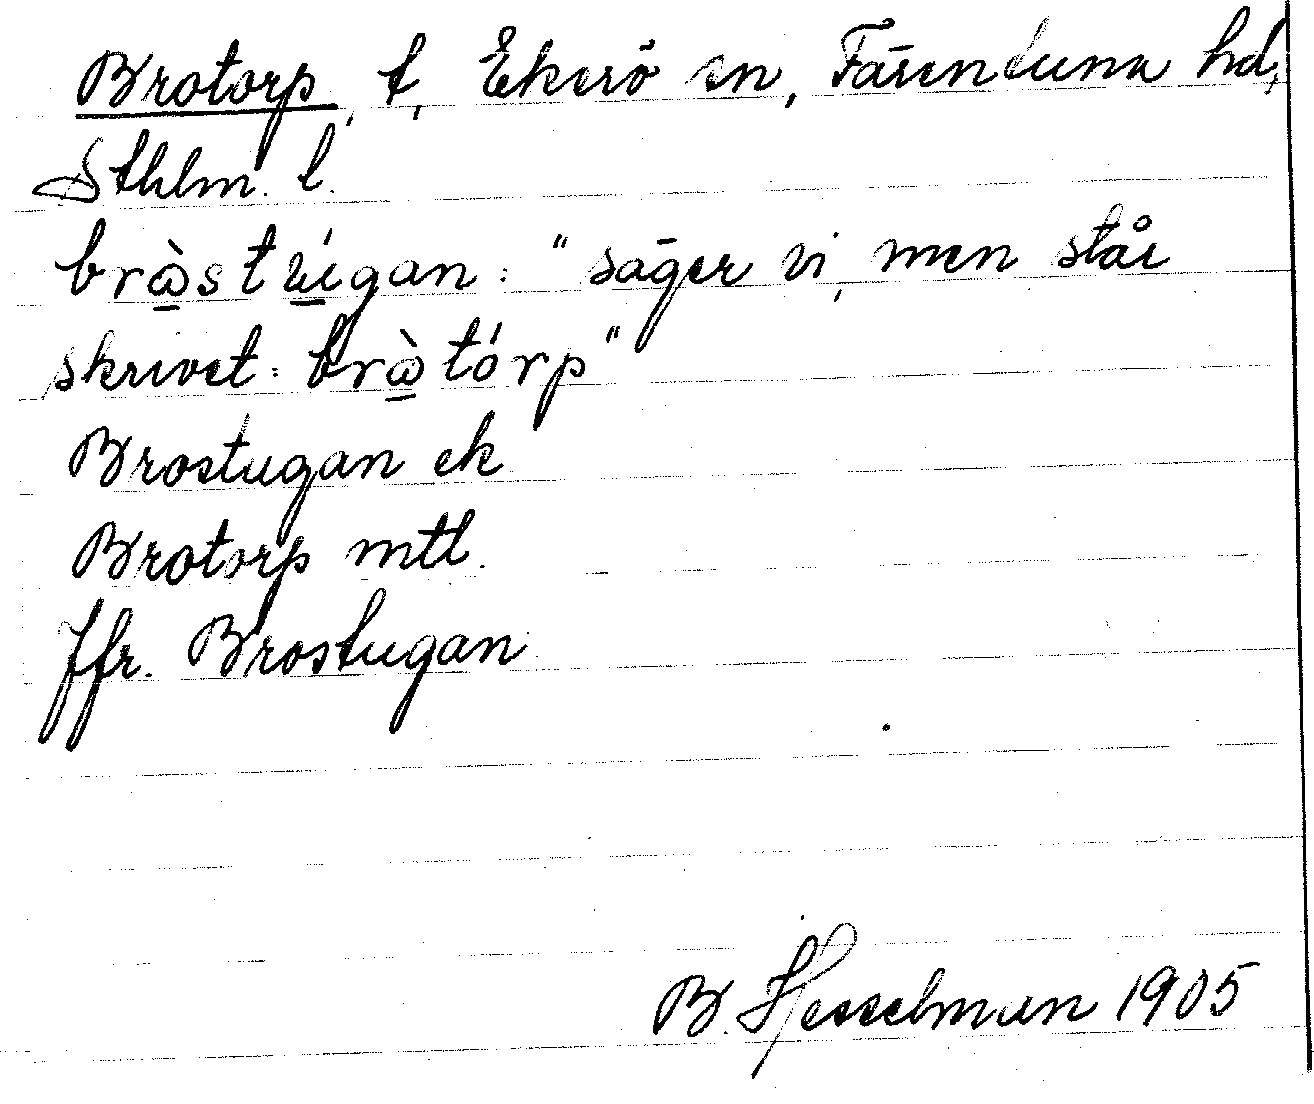 Brotorp, t, Ekerö sn, Färentuna hd,
Sthlm. l.
bròstúgan: "säger vi, men står
skrivet: bròtórp"
Brostugan ek
Brotorp mtl.
Jfr. Brostugan
B. Hesselman 1905